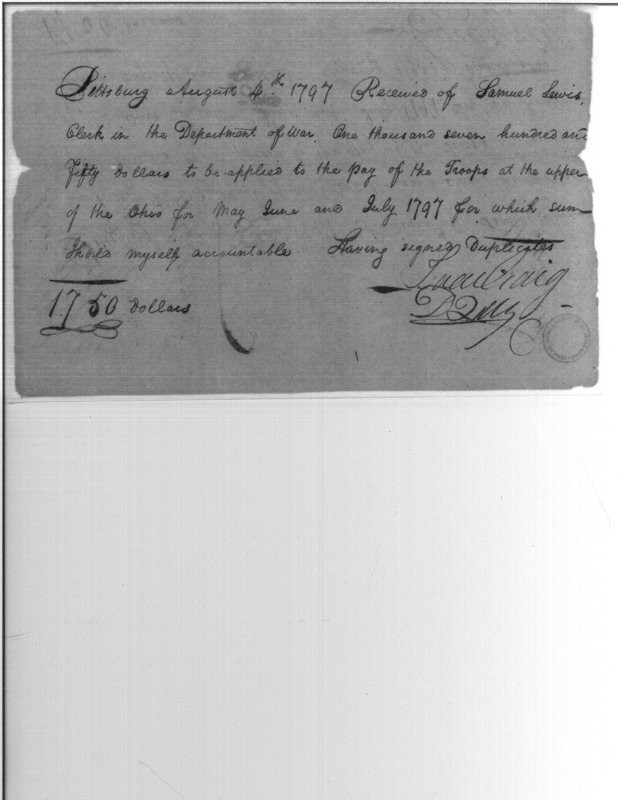 Pittsburg August 4th. 1797 Received of Samuel Lewis,
Clerk in the Department of War, One thousand seven hundred and
Fifty dollars to be applied to the pay of the Troops at the upper
of the Ohio for May June and July 1797 for which sum
I hold myself accountable. Having signed Duplicates
Isaac Craig
1750 dollars
D Q M